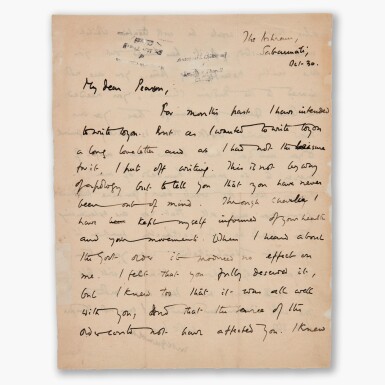 The Ashram,
Sabarmati,
Oct. 30.
My dear Pearson,
For months past I have intended
to write to you. But as I wanted to write to you
a long love letter and as I had not the leisure
for it, I put off writing. This is not by way
of apology but to tell you that you have never
been out of mind. Through Charlie I
have kept myself informed of your health
and your movement. When I heard about
the Govt order it produced no effect on
me. I felt that you fully deserved it,
but I knew too that it was all well
with you, and that the service of the
order could not have affected you. I knew